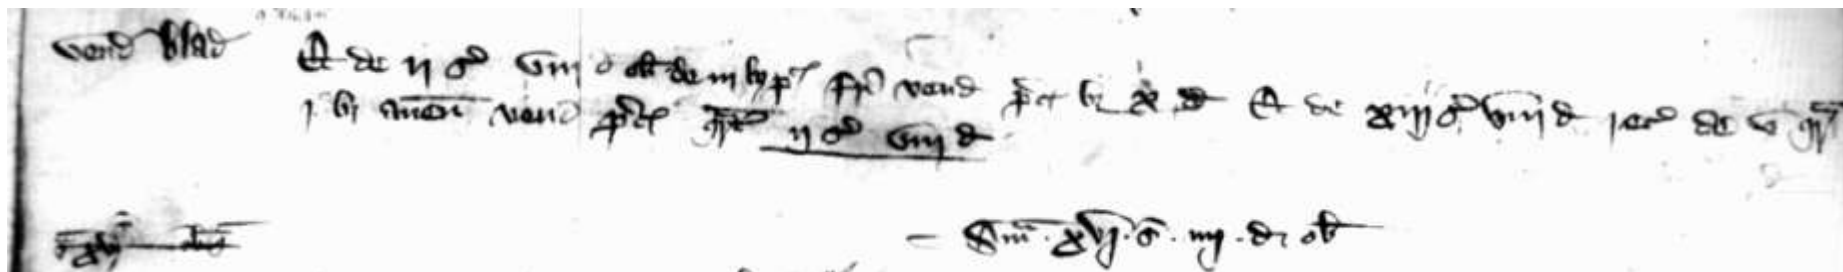 vend blad Et de ij s viij d ob de iij bz j p frī vend p'c bz x d Et de xiij s viij d rec' de v qr'
j bz auen vend p'c qrt' ij s viij d
Sm̄ . xvj . s . iiij . d . ob